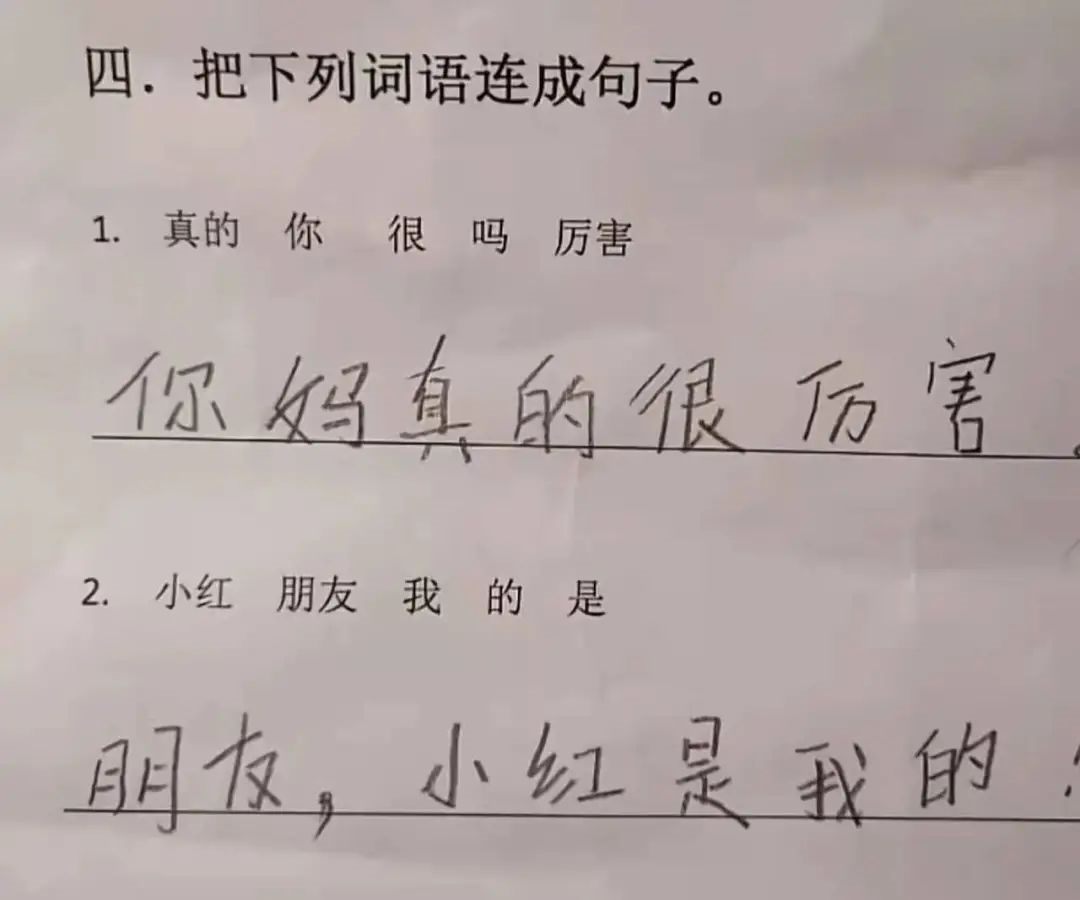 四. 把下列词语连成句子。
1. 真的 你 很 吗 厉害
你妈真的很厉害。
2. 小红 朋友 我 的 是
朋友，小红是我的